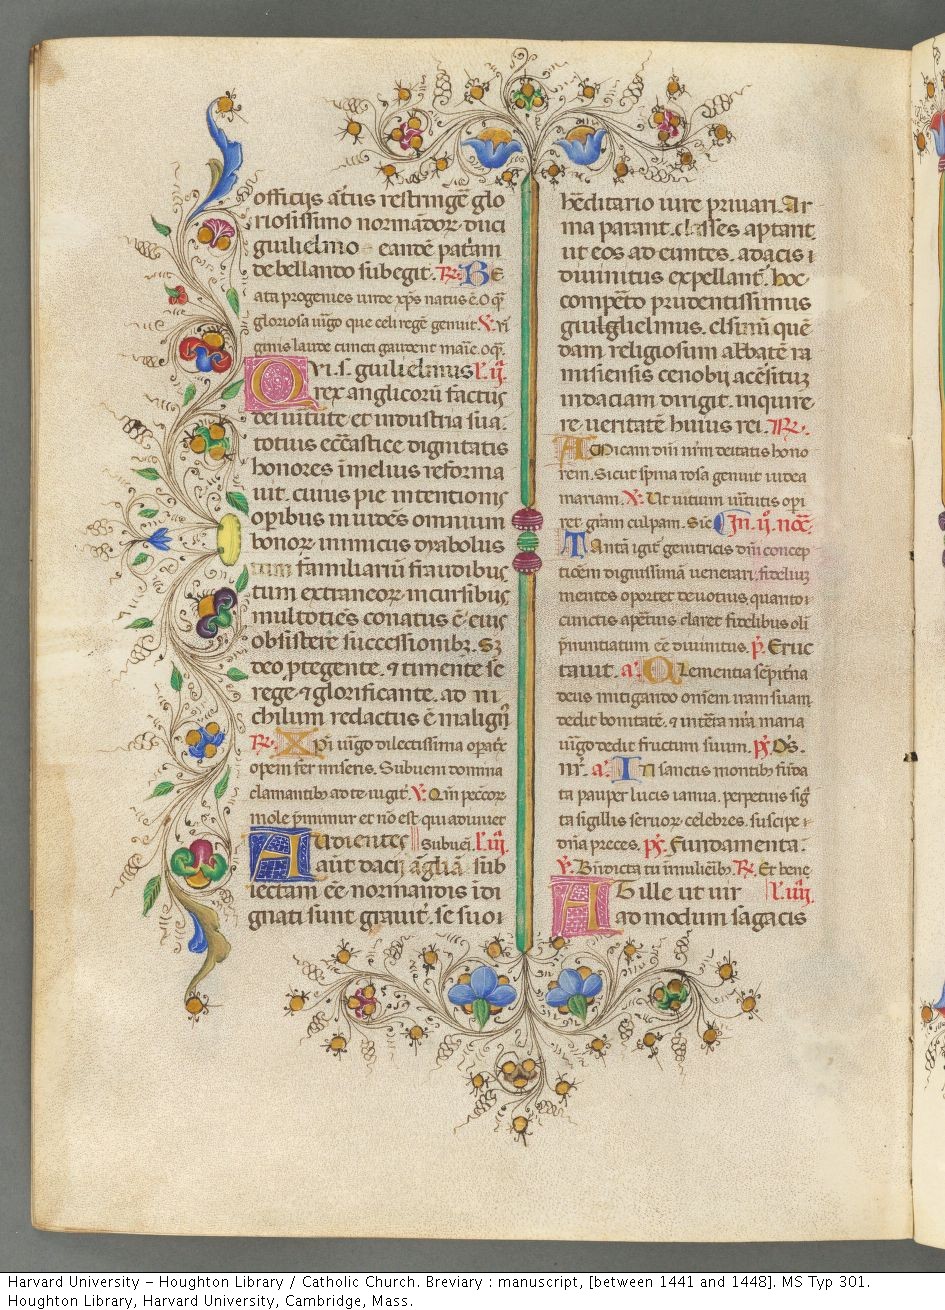 officijs art̾us restringe᷑ glo
riosissimo normādoꝝ duci
guilielmo eandē pat̾am
debellando subegit. ℟. Be
ata progenies unde xp̄s natus ē. O q̄
gloriosa uirgo que celi regē genuit. ℣. Vi
ginis laude cuncti gaudent maxīe. oq̄.
QVi. s. guilielmus l. ij.
rex anglicorū factus
dei uirtute et industria sua.
totius eccl̄iastice dignitatis
honores ī melius reforma
uit. cuius pie intentionis
operibus inuidēs omnium
bonoꝝ inimicus dyabolus
tum familiariū fraudibus
tum extraneoꝝ incursibus
multotiēs conatus ē eius
obsistere successionibꝫ. Sꝫ
deo ꝓtegente. ⁊ timente se
rege ⁊ glorificante. ad ni
chilum redactus ē malignꝰ
℟. Xpi uirgo dilectissima
opem fer miseris. Subueni domina
clamantibꝫ ad te iugit̾. ℣. Qm̄ pecc̄oꝝ
mole p̄mimur et nō est qui adiuuet
Audientes Subueni. l. iij.
aut̄ dacij āgliā sub
iectam eē normandis īdi
gnati sunt grauit̾. se suoi
hēditario iure priuari. Ar
ma parant. classes aptant
ut eos ad euntes. a dacis i
diuinitus expellant̾. hoc
comp̄to prudentissimus
guilglielmus. elsinū quē
dam religiosum abbatē ra
misiensis cenobij acc̄situꝫ
in daciam dirigit. inquire
re ueritatē huius rei. ℟.
Ad nutum dn̄i nr̄m ditantis hono
rem. Sicut spina rosa genuit iudea
mariam. ℣. Ut uitium uirtutis opi
ret gr̄am culpam. Sic In. ij. noc̄.
Tantā igit̾ genitricis dn̄i concep
tiōem dignissimā uenerari. fideliuꝫ
mentes oportet deuotius. quanto i
cunctis ap̄tius claret fidelibus olī
p̄nuntiatum eē diuinitus. p̄. Eruc
tauit. a. Clementia sēpit̄na
deus mitigando omēm iram suam
dedit bonitatē. ⁊ intēta nr̄a maria
uirgo dedit fructum suum. pͯ. Dn̄s.
nr̄. a. In sanctis montibꝫ fūda
ta pauper lucis ianua. perpetuis sig̅
ta sigillis seruoꝝ celebres. suscipe i
dn̄a preces. pͯ. Fundamenta.
℣. Bn̄dicta tu ī mulieribꝫ. ℟. Et bene
ABille ut uir l. iiij.
ad modum sagacis
Harvard University – Houghton Library / Catholic Church. Breviary : manuscript, [between 1441 and 1448]. MS Typ 301.
Houghton Library, Harvard University, Cambridge, Mass.